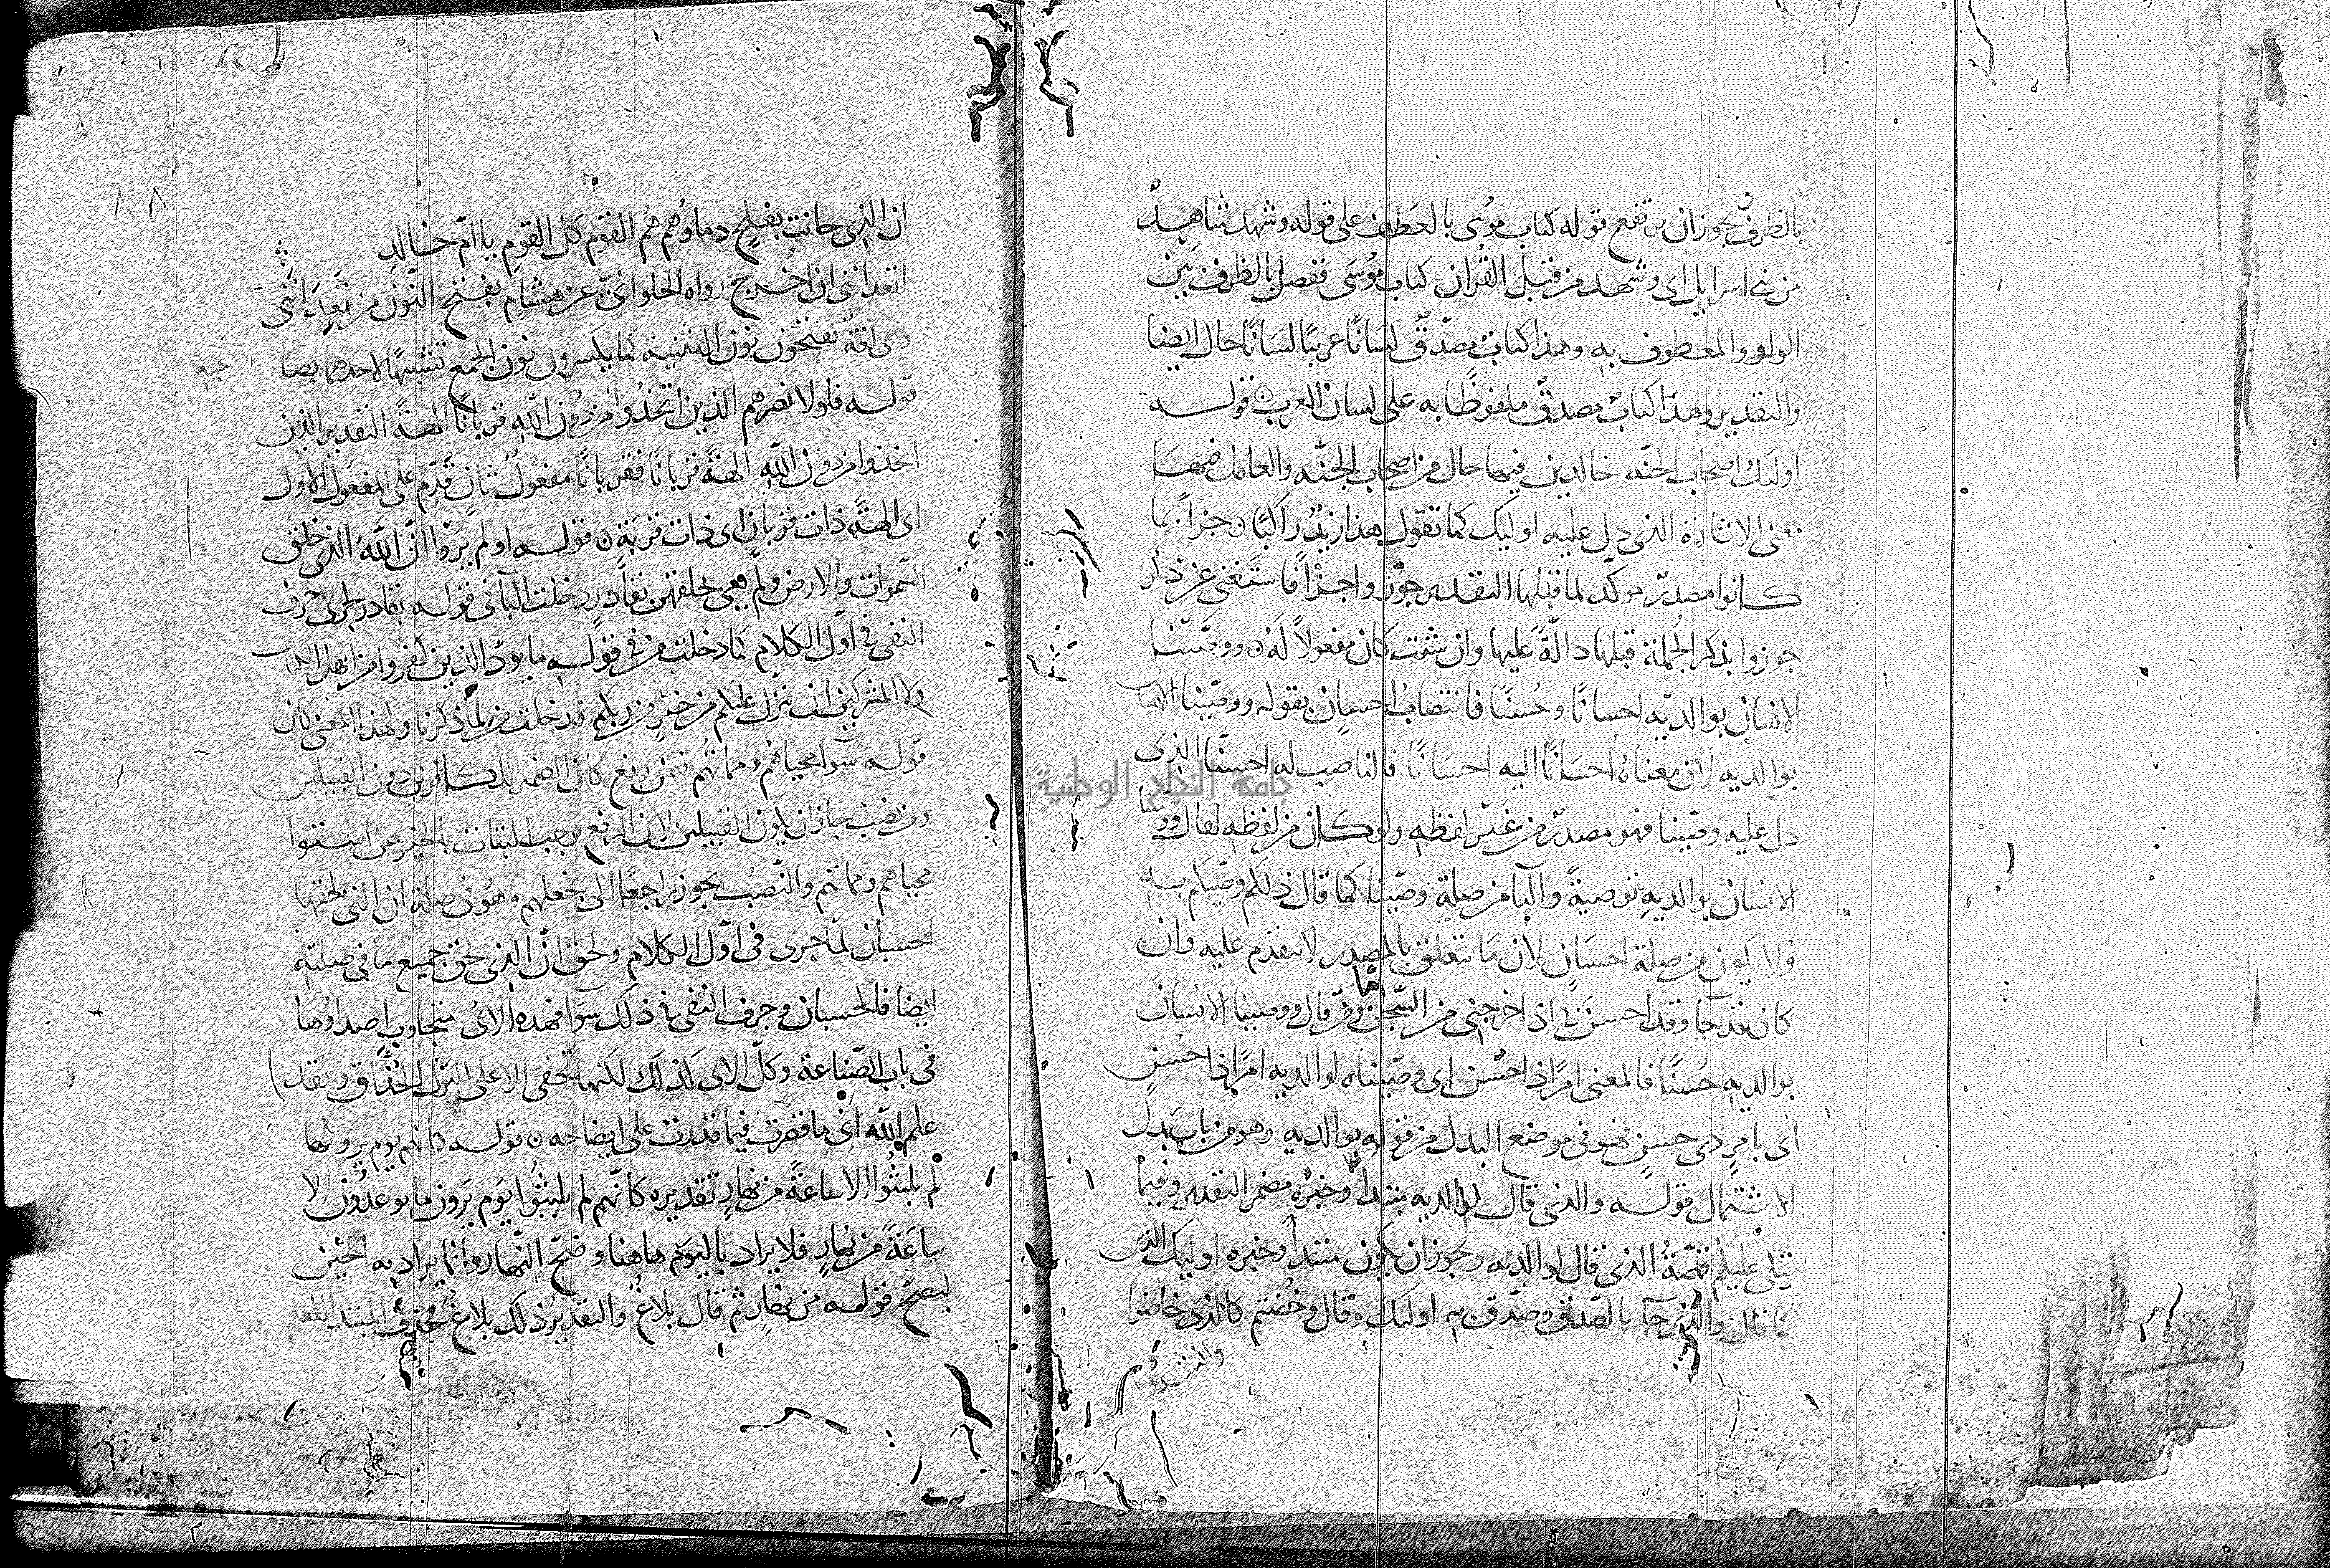 بالظرف يجوز ان يرتفع قوله كتاب موسى بالعطف على قوله وشهد شاهد
من بنى اسرايل اى وشهد من قبل القران كتاب موسى ففصل بالظرف بين
الواو والمعطوف به وهذا كتاب مصدق لسانا عربيا لسانا حال ايضا
والتقدير وهذا كتاب مصدق ملفوظا به على لسان العرب ۞ قوله
اوليك اصحاب الجنه خالدين فيها حال من اصحاب الجنه والعامل فيها
معنى الاشارة الذى دل عليه اوليك كما تقول هذا زيد راكبا ۞ جزآ بما
كانوا مصدر موكد لما قبلها التقدير جوزوا جزآ فاستغنى عن ذكر
جوزوا بذكر الجملة قبلها دالة عليها وان شئت كان مفعولا له ۞ ووصينا
الانسان بوالديه احسانا وحسنا فانتصاب احسان بقوله ووصينا الانسان
بوالديه لان معناه احسانا اليه احسانا فالناصب له احسنا الذى
دل عليه وصينا فهو مصدر من غير لفظه ولو كان من لفظه لقال ووصينا
الانسان بوالديه توصية والبآ من صلة وصينا كما قال ذلكم وصيكم به
ولا يكون من صلة احسان لان ما يتعلق بالمصدر لا يتقدم عليه وان
كان قد جآ وقد احسن بى اذ اخرجنى من السجن ومن قال ووصينا الانسان
بوالديه حسنا فالمعنى امرا ذا حسن اى وصيناه لوالديه امرا ذا حسن
اى بامر ذى حسن فهو فى موضع البدل من قوله بوالديه وهو من باب بدل
الاشتمال قوله والذى قال لوالديه مبتدا وخبره مضمر التقدير وفيما
يتلى عليكم قصة الذى قال لوالديه ويجوز ان يكون مبتدا وخبره اوليك الذين
كما قال والذى جآ بالصدق وصدق به اوليك وقال وخضتم كالذى خاضوا
وانشدوا
ان الذى حانت بفلج دماوهم هم القوم كل القوم يا ام خالد
اتعداننى ان اخرج رواه الحلوانى عن هشام بفتح النون من تعداننى
وهى لغة يفتحون نون التثنية كما يكسرون نون الجمع تشبيها لاحدهما بصا
حبه
قوله فلولا نصرهم الذين اتخذوا من دون الله قربانا الهة التقدير الذين
اتخذوا من دون الله الهة قربانا فقربانا مفعول ثان قدم على المفعول الاول
اى الهة ذات قربان اى ذات قربة ۞ قوله اولم يروا ان الله الذى خلق
السموات والارض ولم يعى بخلقهن بقادر دخلت البآ فى قوله بقادر لجرى حرف
النفى فى اول الكلام كما دخلت من فى قوله ما يود الذين كفروا من اهل الكتاب
ولا المشركين ان ينزل عليكم من خير من ربكم فدخلت من لما ذكرنا ولهذا المعنى كان
قوله سوآ محياهم ومماتهم فمن رفع كان الضمير للكافرين دون القبيلين
ومن نصب جاز ان يكون القبيلين لان الرفع يوجب البتات بالخبر عن استوا
محياهم ومماتهم والنصب يجوز راجعا الى نجعلهم وهو فى صلة ان الذى يلحقها
الحسبان لما جرى فى اول الكلام ولحق ان الذى لحق جميع ما فى صلته
ايضا فالحسبان وحرف النفى فى ذلك سوآ فهذه الاى متجاوب اصداوها
فى باب الصناعة وكل الاى كذلك لكنها تخفى الا على البزل الحذاق ولقد
علم الله انى ما قصرت فيما قدرت على ايضاحه ۞ قوله كانهم يوم يرونها
لم يلبثوا الا ساعة من نهار تقديره كانهم لم يلبثوا يوم يرون ما يوعدون الا
ساعة من نهار فلا يراد باليوم هاهنا وضح النهار وانما يراد به الحين
ليصح قوله من نهار ثم قال بلاغ والتقدير ذلك بلاغ فحذف المبتدا للعلم
جامعة النجاح الوطنية